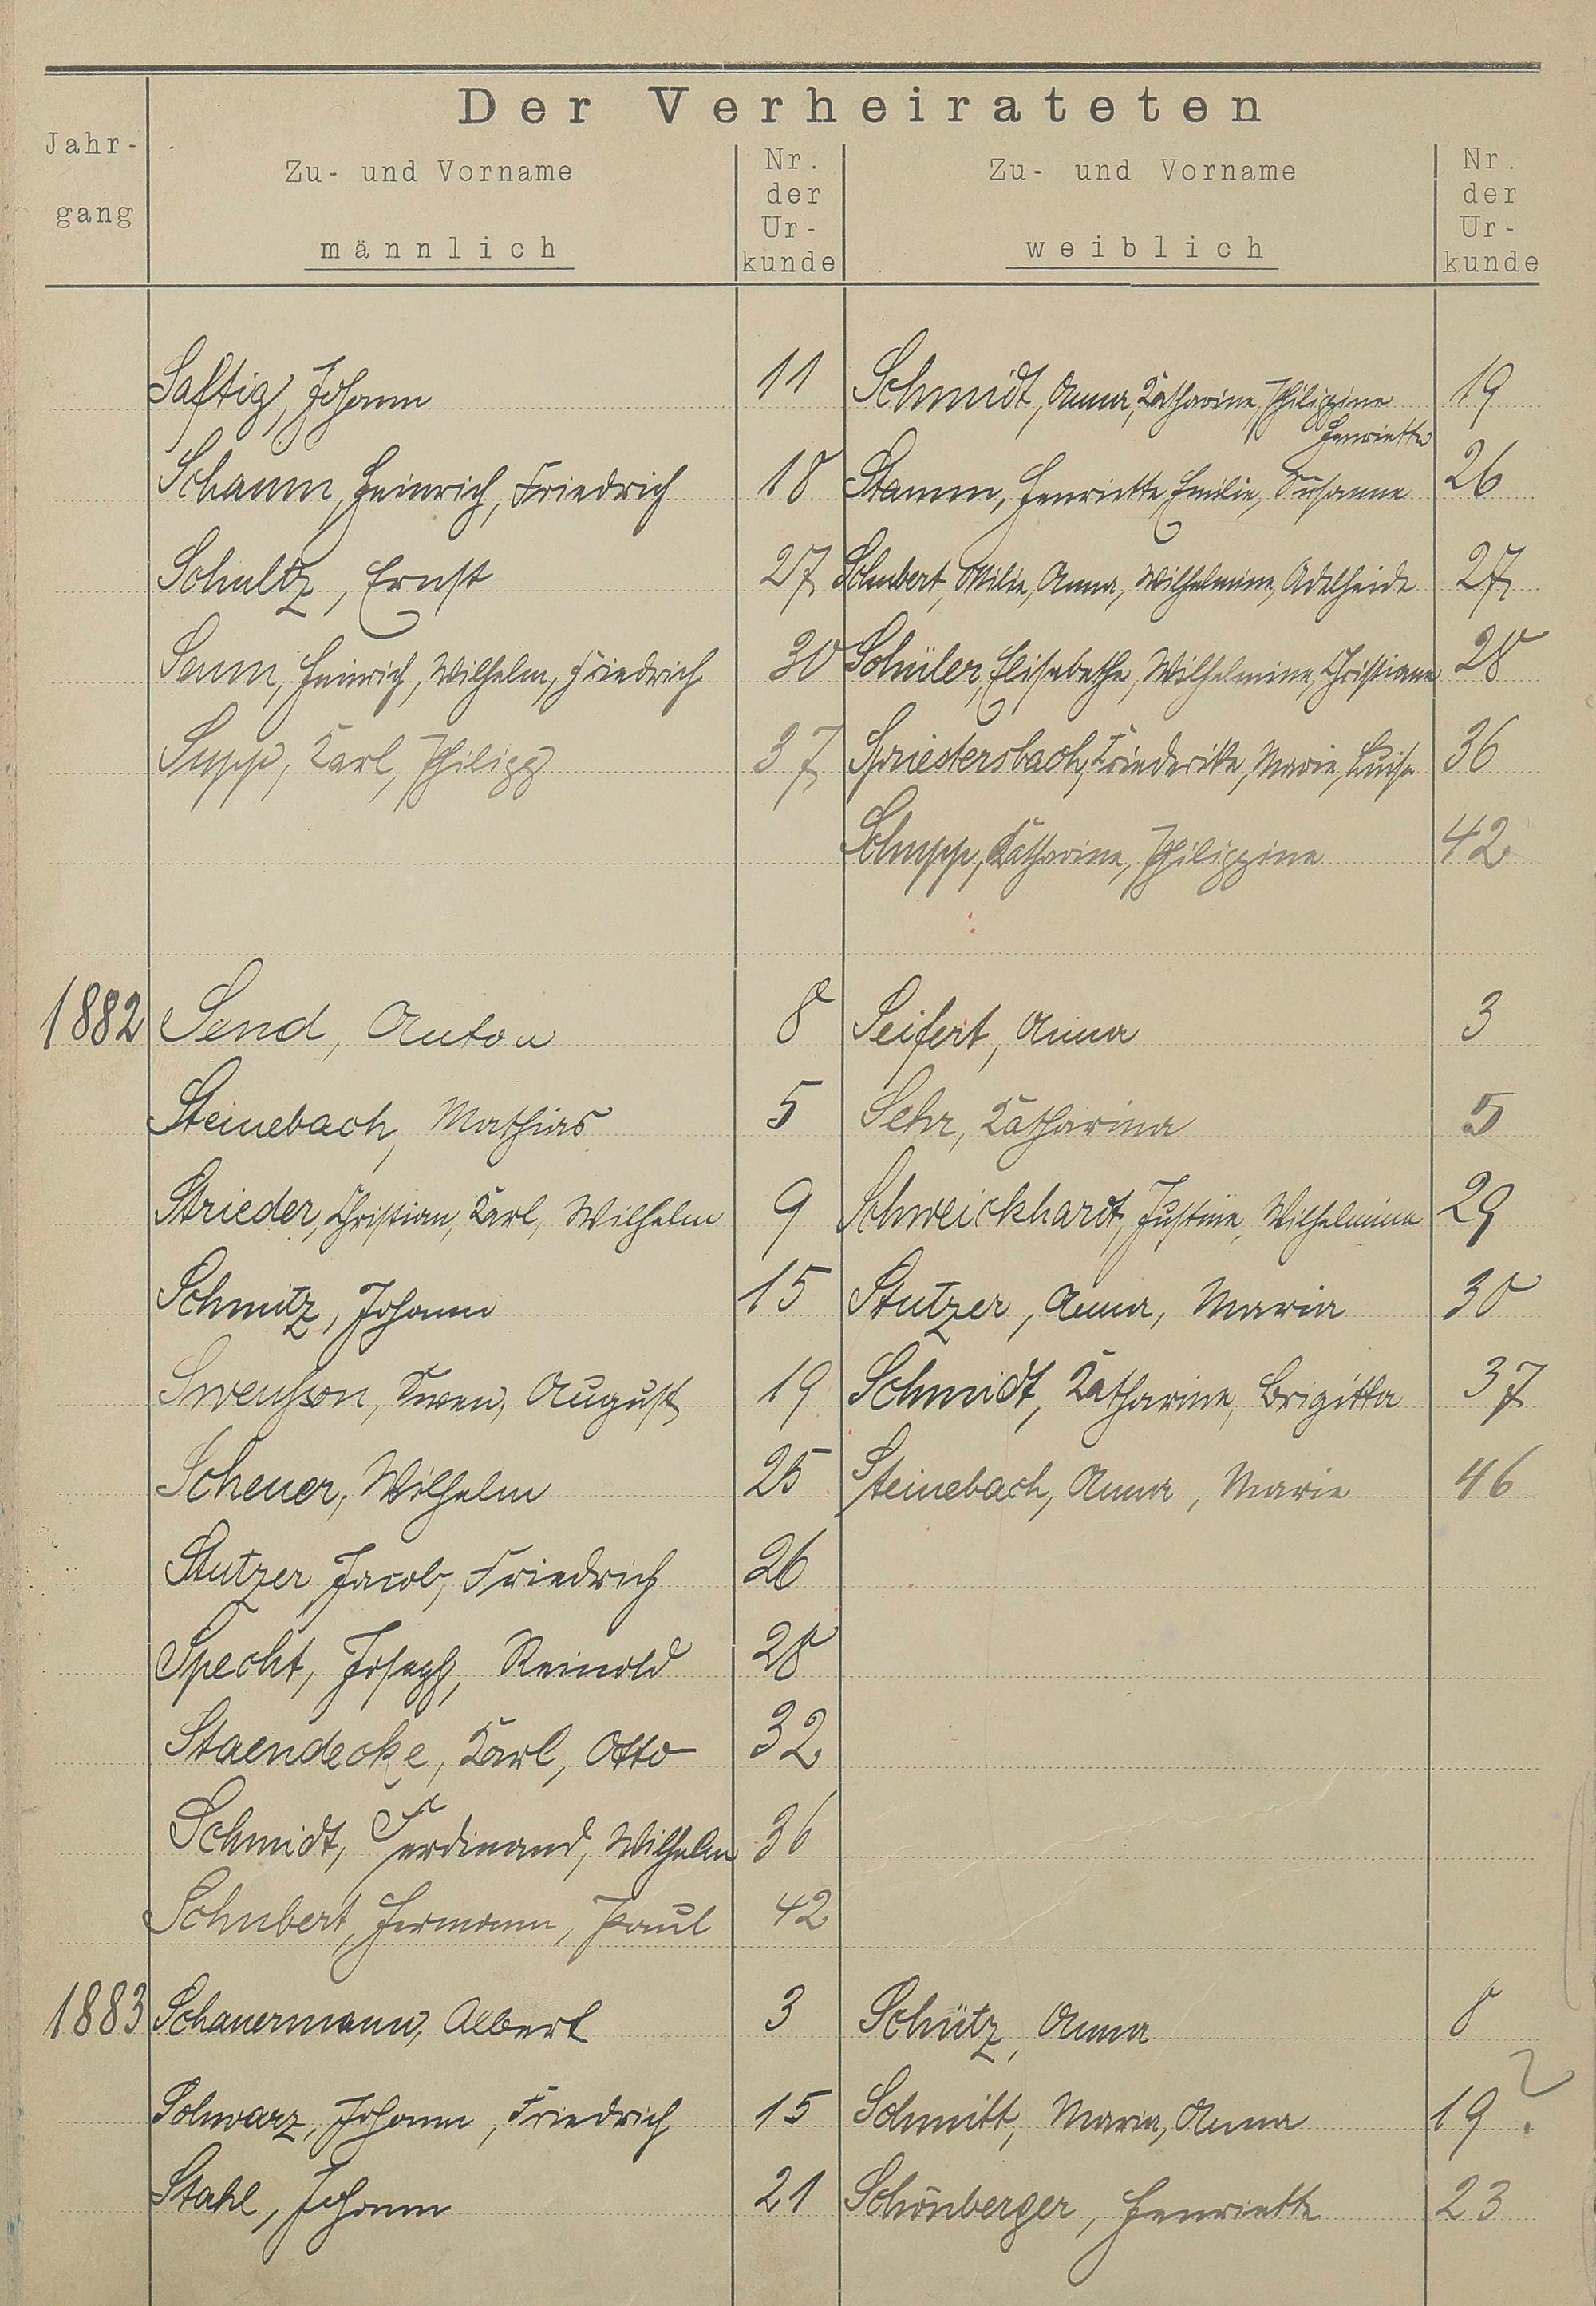 Der Verheirateten
Jahr-
gang
Zu- und Vorname
männlich
Nr.
der
Ur-
kunde
Zu- und Vorname
weiblich
Nr.
der
Ur-
kunde
Saftig, Johann 11 Schmidt, Anna, Katharine, Philippine 19
Henriette
Schaum, Heinrich, Friedrich 18 Stamm, Henriette, Emilie, Susanne 26
Schultz, Ernst 27 Schubert, Ottilie, Anna, Wilhelmine, Adelheide 27
Senn, Heinrich, Wilhelm, Friedrich 30 Schüler, Elisabethe, Wilhelmine, Christiane 28
Supp, Karl, Philipp 37 Spriestersbach, Friederike, Marie, Luise 36
Schupp, Katharine, Philippine 42
1882 Send, Anton 8 Seifert, Anna 3
Steinebach, Mathias 5 Sehr, Katharina 5
Strieder, Christian, Karl, Wilhelm 9 Schweickhardt, Justine, Wilhelmine 29
Schmitz, Johann 15 Stutzer, Anna, Maria 30
Swenson, Swen, August 19 Schmidt, Katharine, Brigitta 37
Scheuer, Wilhelm 25 Steinebach, Anna, Marie 46
Stutzer Jacob, Friedrich 26
Specht, Joseph, Reinold 28
Staendecke, Karl, Otto 32
Schmidt, Ferdinand, Wilhelm 36
Schubert, Hermann, Paul 42
1883 Schauermann, Albert 3 Schütz, Anna 8
Schwarz, Johann, Friedrich 15 Schmitt, Maria, Anna 19 ?
Stahl, Johann 21 Schönberger, Henriette 23